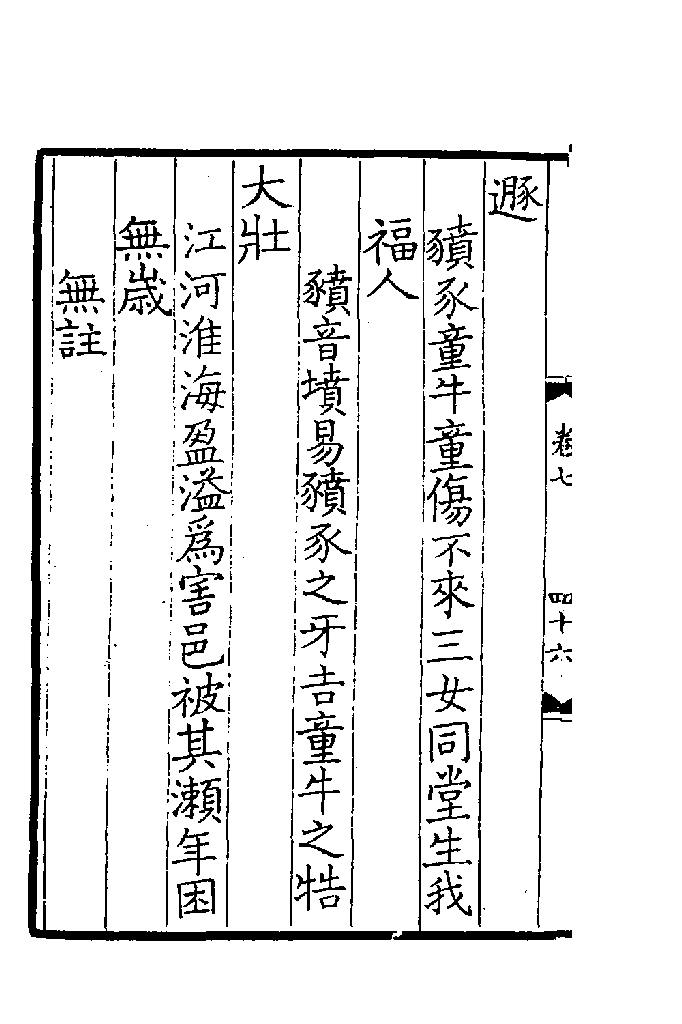 遯
豶豕童牛童傷不來三女同堂生我
福人
豶音墳易豶豕之牙吉童牛之牿
大壯
江河淮海盈溢爲害邑被其瀨年困
無歲
無註
卷七
四十六